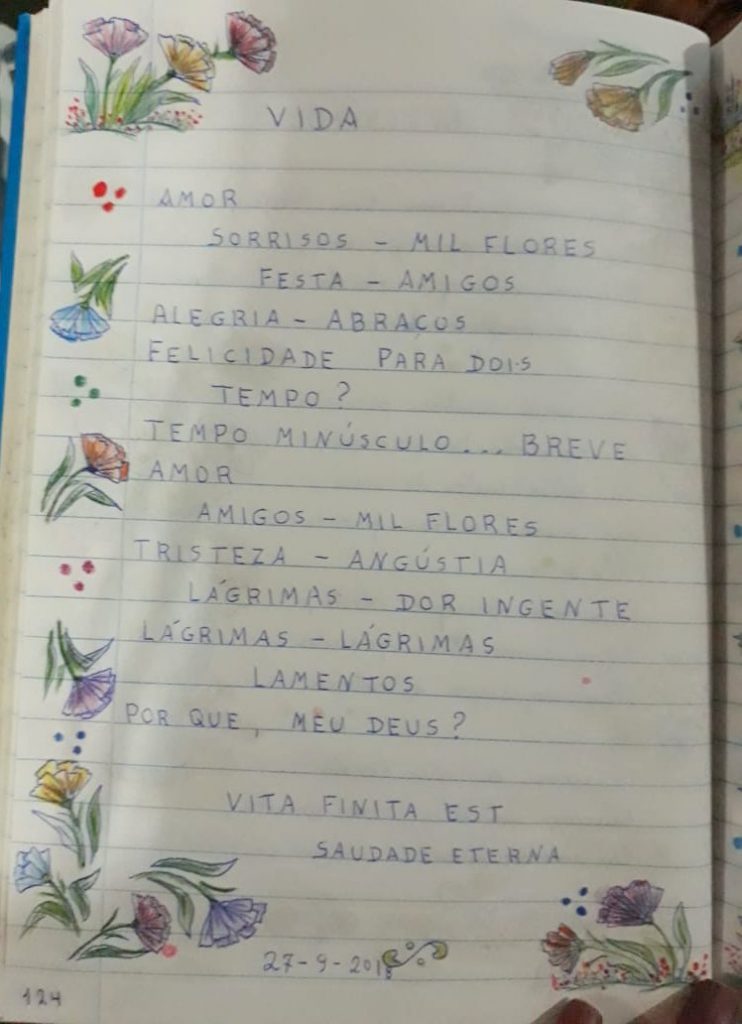 VIDA
AMOR
SORRISOS - MIL FLORES
FESTA - AMIGOS
ALEGRIA - ABRAÇOS
FELICIDADE PARA DOIS
TEMPO?
TEMPO MINÚSCULO... BREVE
AMOR
AMIGOS - MIL FLORES
TRISTEZA - ANGÚSTIA
LÁGRIMAS - DOR INGENTE
LÁGRIMAS - LÁGRIMAS
LAMENTOS
POR QUE, MEU DEUS?
VITA FINITA EST
SAUDADE ETERNA
27-9-2018
124